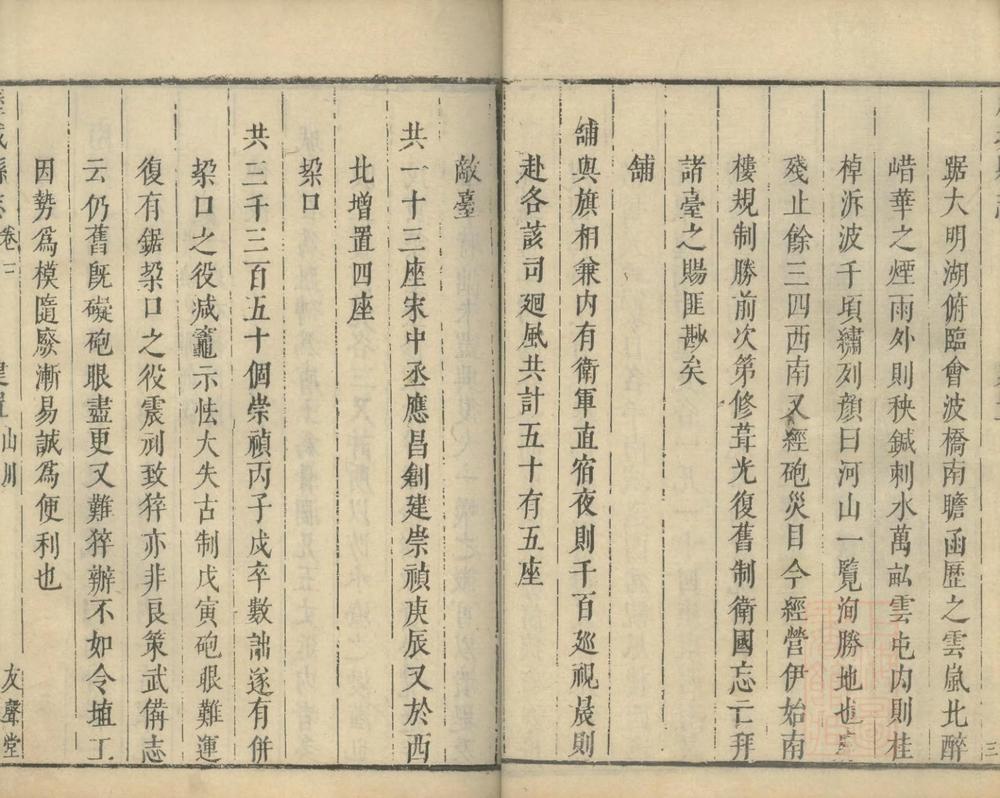 踞大明湖俯臨會波橋南瞻函歷之雲嵐北醉
崉華之煙雨外則秧鍼刺水萬畆雲屯內則桂
棹泝波千頃繡列顏曰河山一覽洵勝地也
殘止餘三四西南又經砲災目今經營伊始南
樓規制勝前次第修葺光復舊制衛國忘亡拜
諸臺之賜匪尠矣
舖
舖與旗相兼內有衛軍直宿夜則千百廵視晨則
赴各該司廻風共計五十有五座
敵臺
共一十三座宋中丞應昌創建崇禎庚辰又於西
北增置四座
垜口
共三千三百五十個崇禎丙子戍卒數詘遂有併
垜口之役減竈示怯大失古制戊寅砲眼難運
復有鋸垜口之役震刓致猝亦非良策武備志
云仍舊旣礙砲眼盡更又難猝辦不如令埴工
因勢爲模隨廢漸易誠爲便利也
縣志 卷三 建置 山川 友聲堂
三